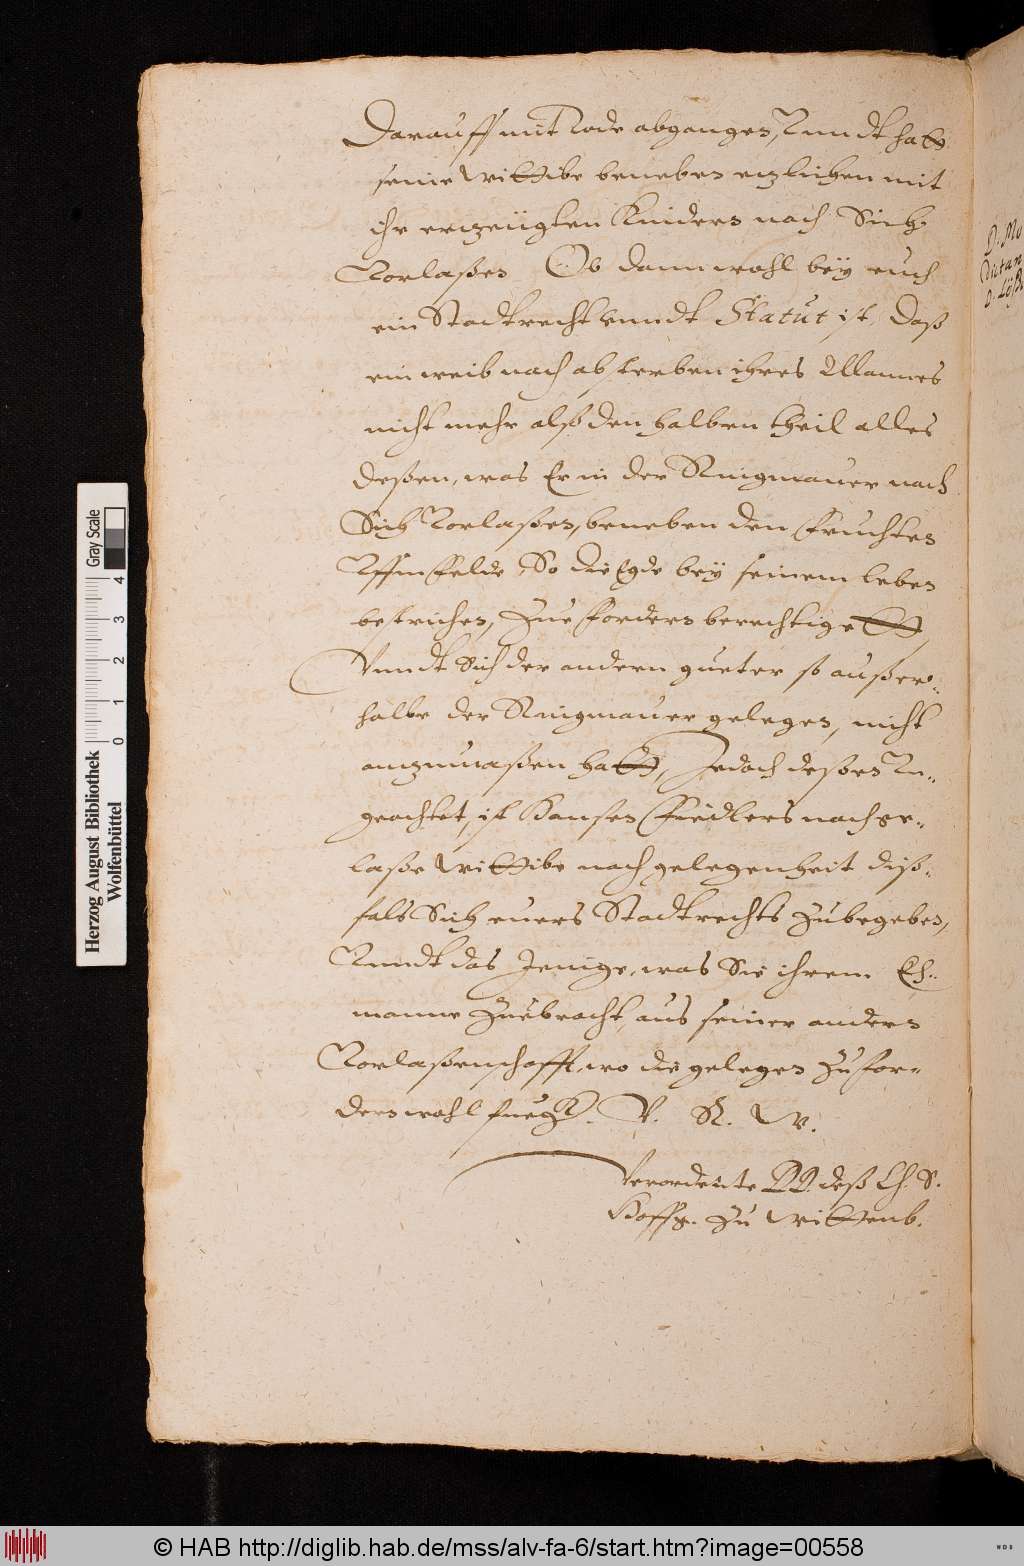 Darauff mit Tode abgangen, Vnndt hatt
seine Wittibe beneben etzlichen mit
ihr erzeugten Kindern nach Sich
Vorlaßen Ob dann wohl bey euch
ein Stadtrecht vnndt Statut ist, Daß
ein weib nach absterben ihres Mannes
nicht mehr alß den halben theil alles
deßen, was Er in der Ringmauer nach
Sich Vorlaßen, beneben den Früchten
Vffm Felde, So die Egde bey seinem leben
bestrichen, Zue fordern berechtigett
Vnndt Sich der andern gueter so außer-
halbe der Ringmauer gelegen, nicht
anzumaßen hatt, Jedoch deßen Vn-
geachtet, ist Hansen Fiedlers nachge-
laßne Wittibe nach gelegenheit diß-
fals Sich euers Stadtrechts Zubegeben,
Vnndt das Jenige, was Sie ihrem Eh-
manne Zuebracht, aus seiner andern
Vorlaßenschafft, wo die gelegen Zu for-
dern wohl fuegk. V. R. W.
Verordente DD. deß Ch. S.
Hoffg. Zu Wittenb.
D. Mo
D.
Herzog August Bibliothek
Wolfenbüttel
0 1 2 3 4
Gray Scale
© HAB http://diglib.hab.de/mss/alv-fa-6/start.htm?image=00558
WDB